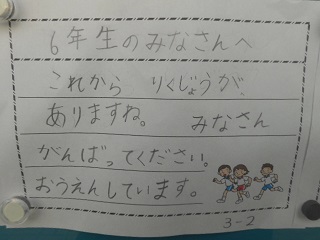 6年生のみなさんへ
これから りくじょうが、
ありますね。 みなさん
がんばってください。
おうえんしています。
3-2